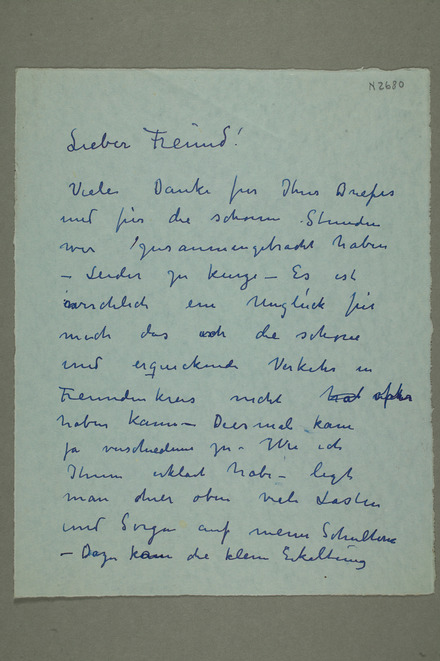 N 2680
Lieber Freund!
Vielen Danke fur Ihre Briefes
und für die schonen Stunden
wir zusammengebracht haben
– Leider zu kurze – Es ist
wirchlich ein Unglück für
mich das ich die schone
und erquickende Verkehr in
Freundenkreis nicht ofter
haben kann – Diesmal kam
ja verschiedene zu – Wie ich
Ihnen erklart habe – legt
man hier oben viele Lasten
und Sorgen auf meine Schultern
– Dazu kam die kleine Erkältung